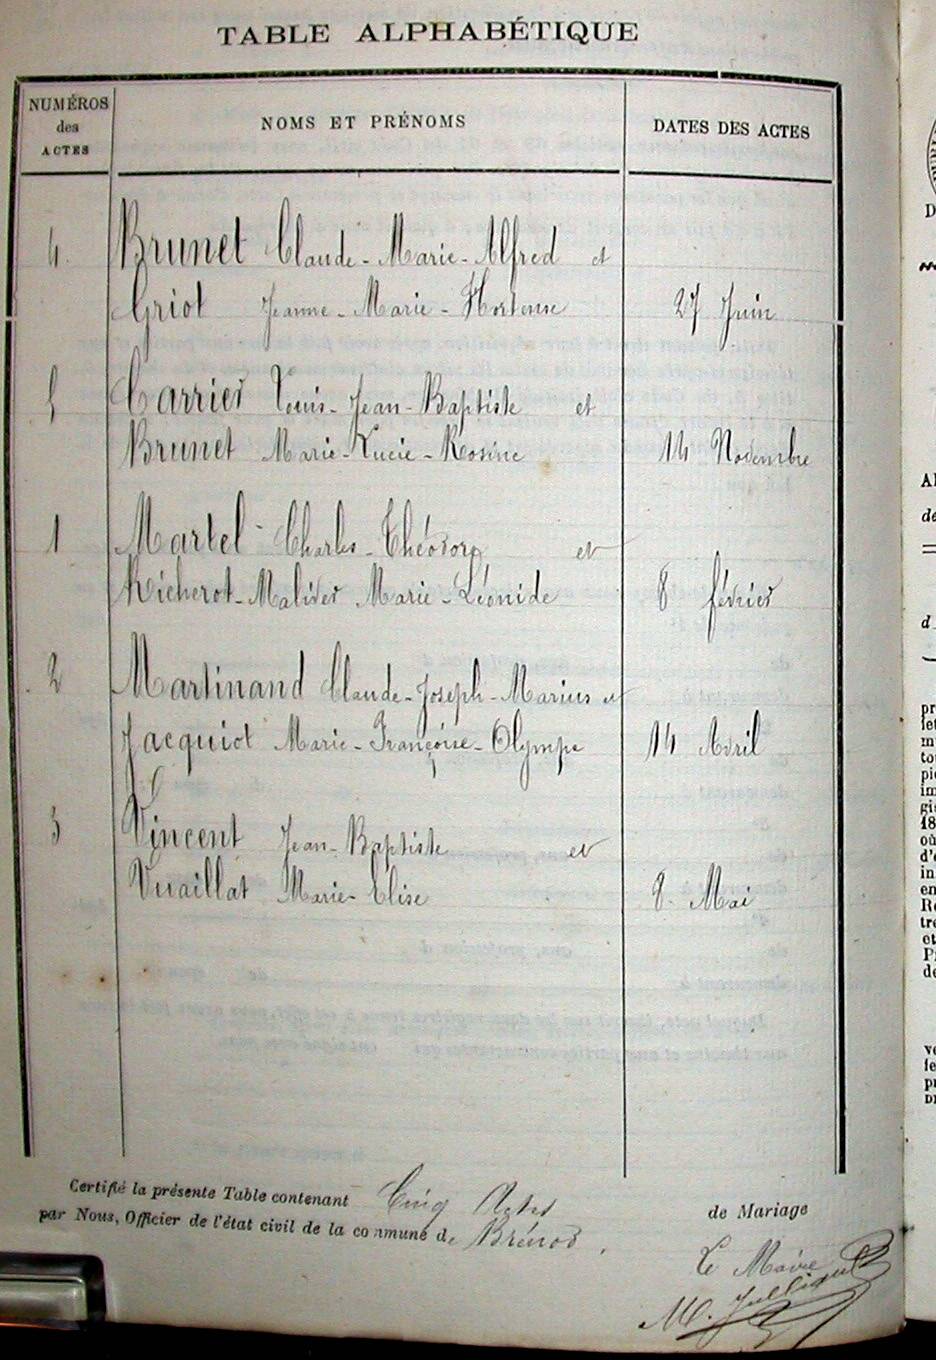 TABLE ALPHABÉTIQUE
NUMÉROS
des
ACTES
NOMS ET PRÉNOMS
DATES DES ACTES
4. Brunet Claude-Marie-Alfred et
Griot Jeanne-Marie-Hortense 27 Juin
5 Carrier Louis-Jean-Baptiste et
Brunet Marie-Lucie-Rosine 14 Novembre
1 Martel Charles-Théodore et
Richerot-Malivet Marie-Léonide 8 février
2 Martinand Claude-Joseph-Marius et
Jacquiot Marie-Françoise-Olympe 14 Avril
3 Vincent Jean-Baptiste et
Vuaillat Marie-Elise 8 Mai
Certifié la présente Table contenant Cinq Actes de Mariage
par Nous, Officier de l'état civil de la commune de Brénod.
Le Maire
M.